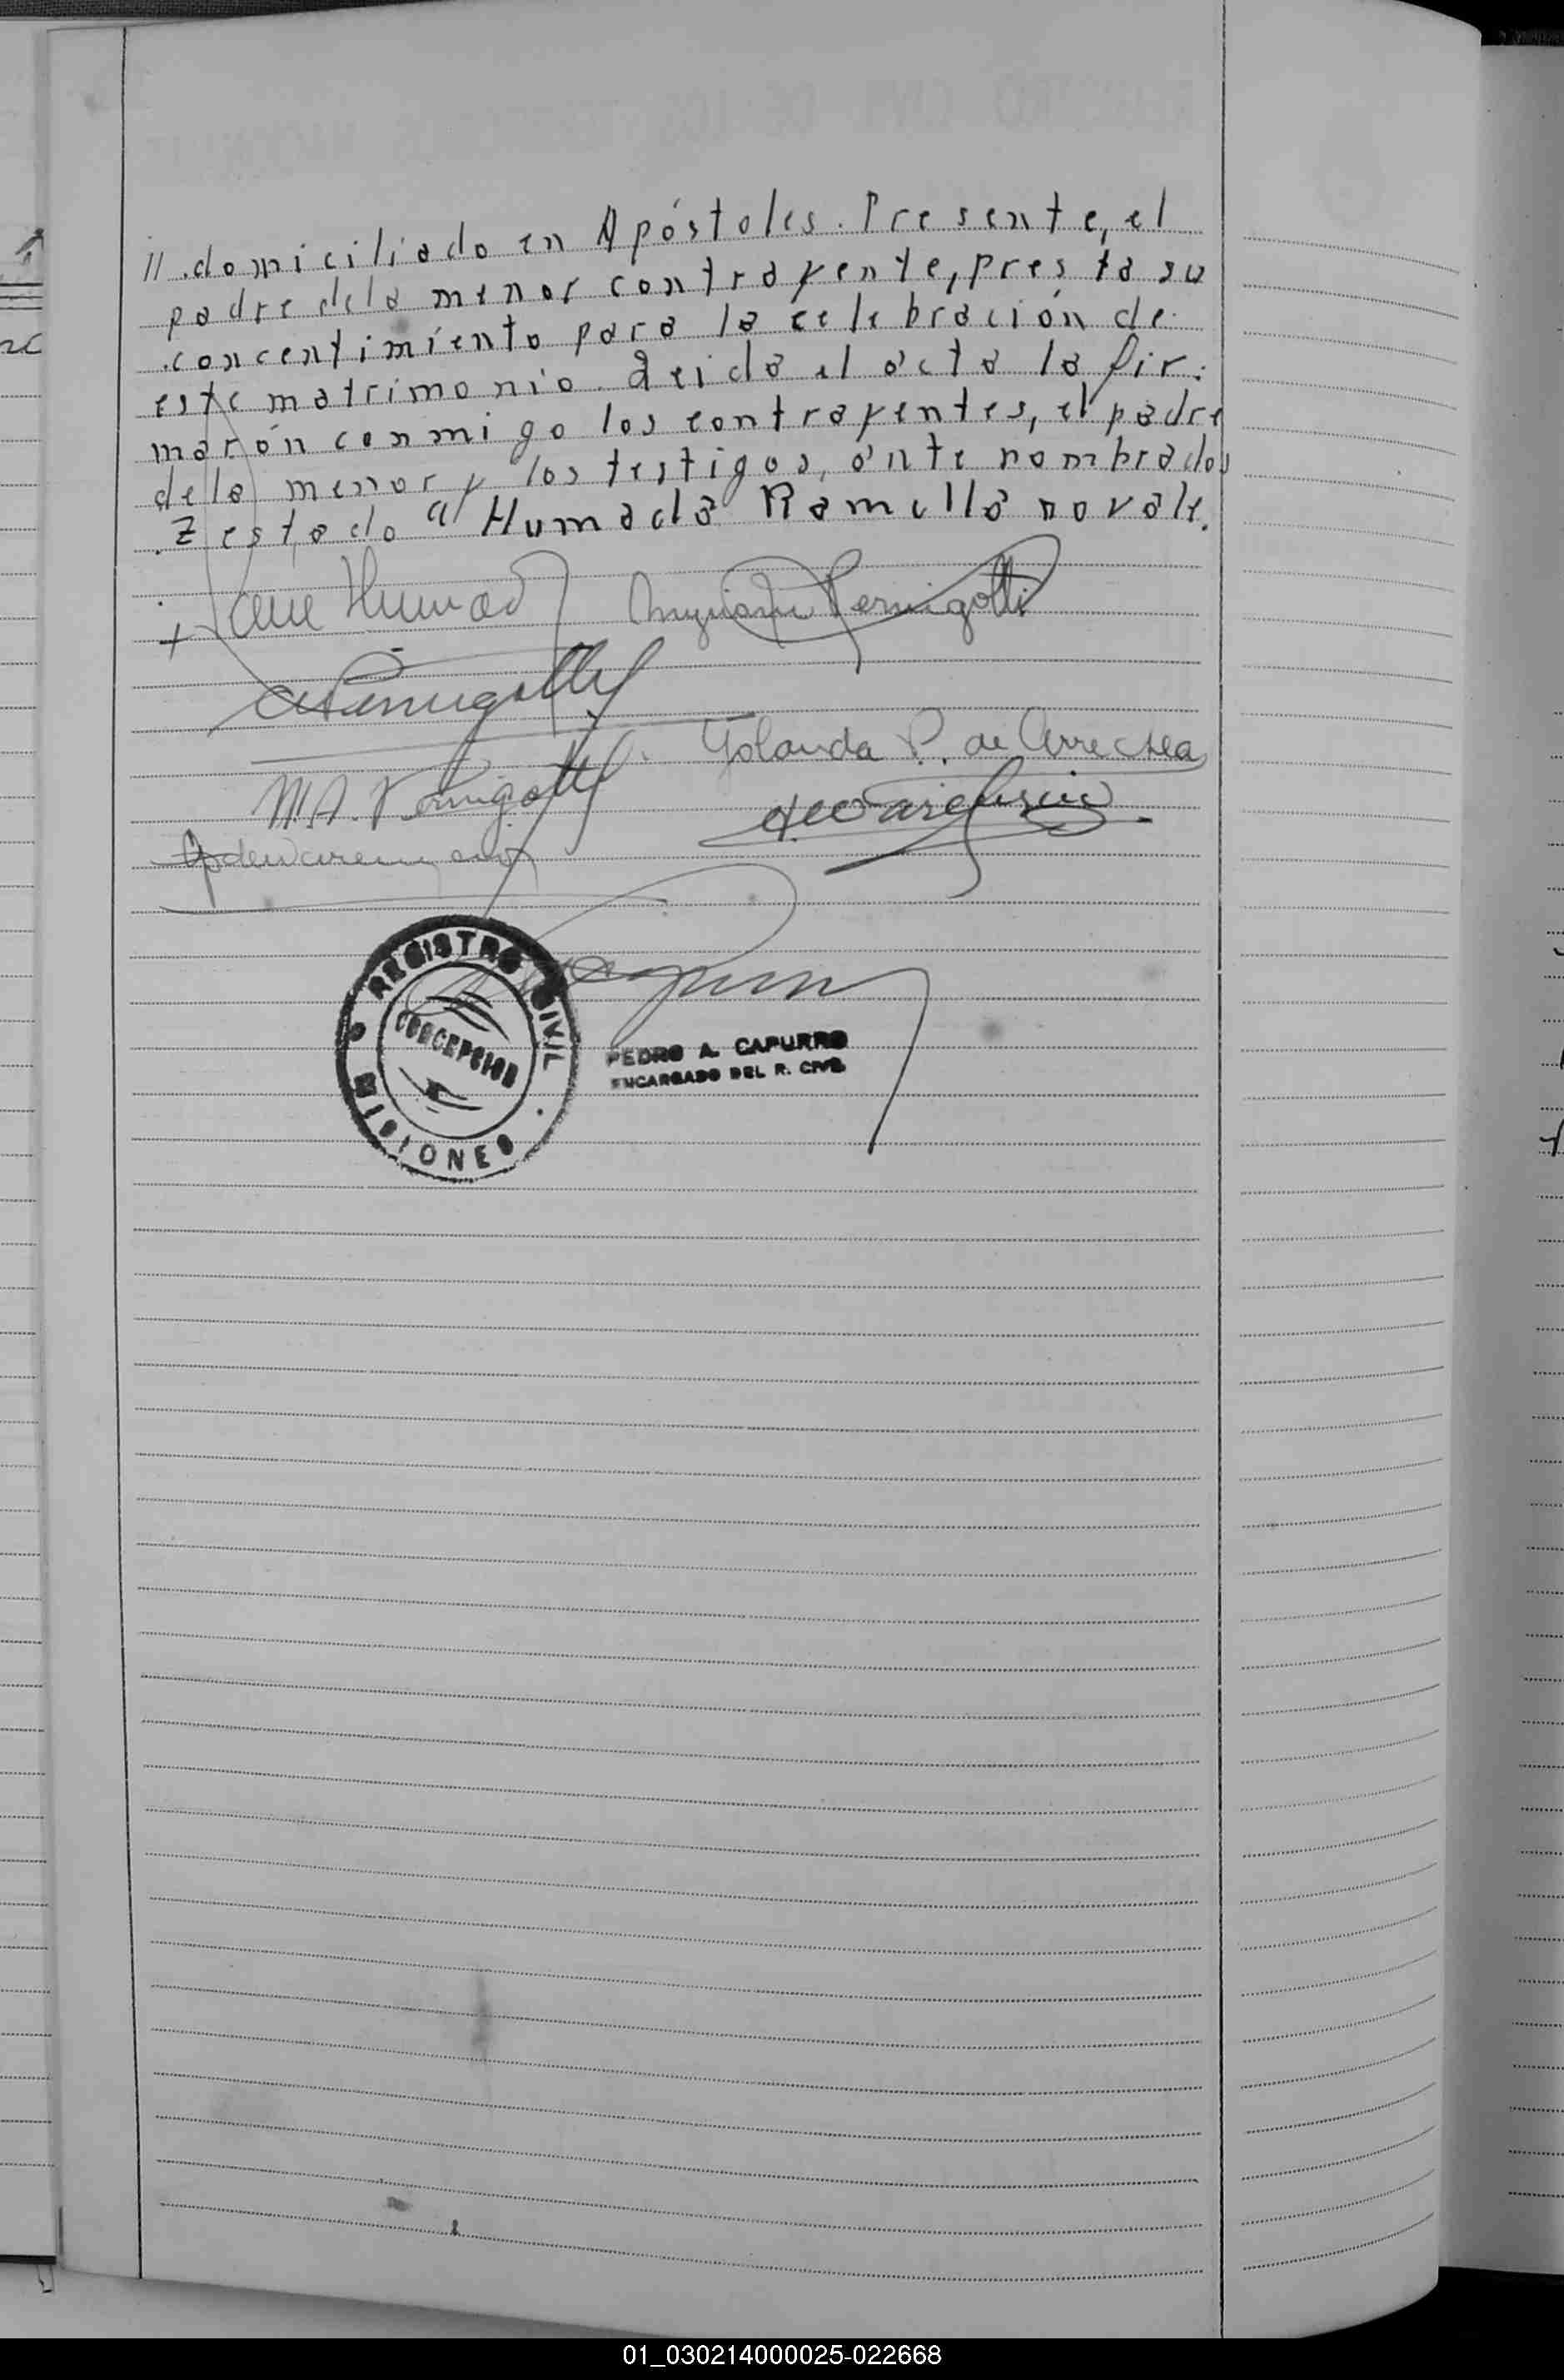 // domiciliado en Apóstoles. Presente, el
padre dela menor contrayente, presta su
concentimiento para la celebración de
este matrimonio. Leida el acta la fir:
marón conmigo los contrayentes, el padre
dela menor y los testigos, ante nombrados
Humada Ramella no vale.
Humad Pernigotti
Pernigotti
Yolanda P. de Arrechea
M.A. Pernigotti
REGISTRO CIVIL
CONCEPCION
MISIONES
PEDRO A. CAPURRO
ENCARGADO DEL R. CIVIL
01_030214000025-022668